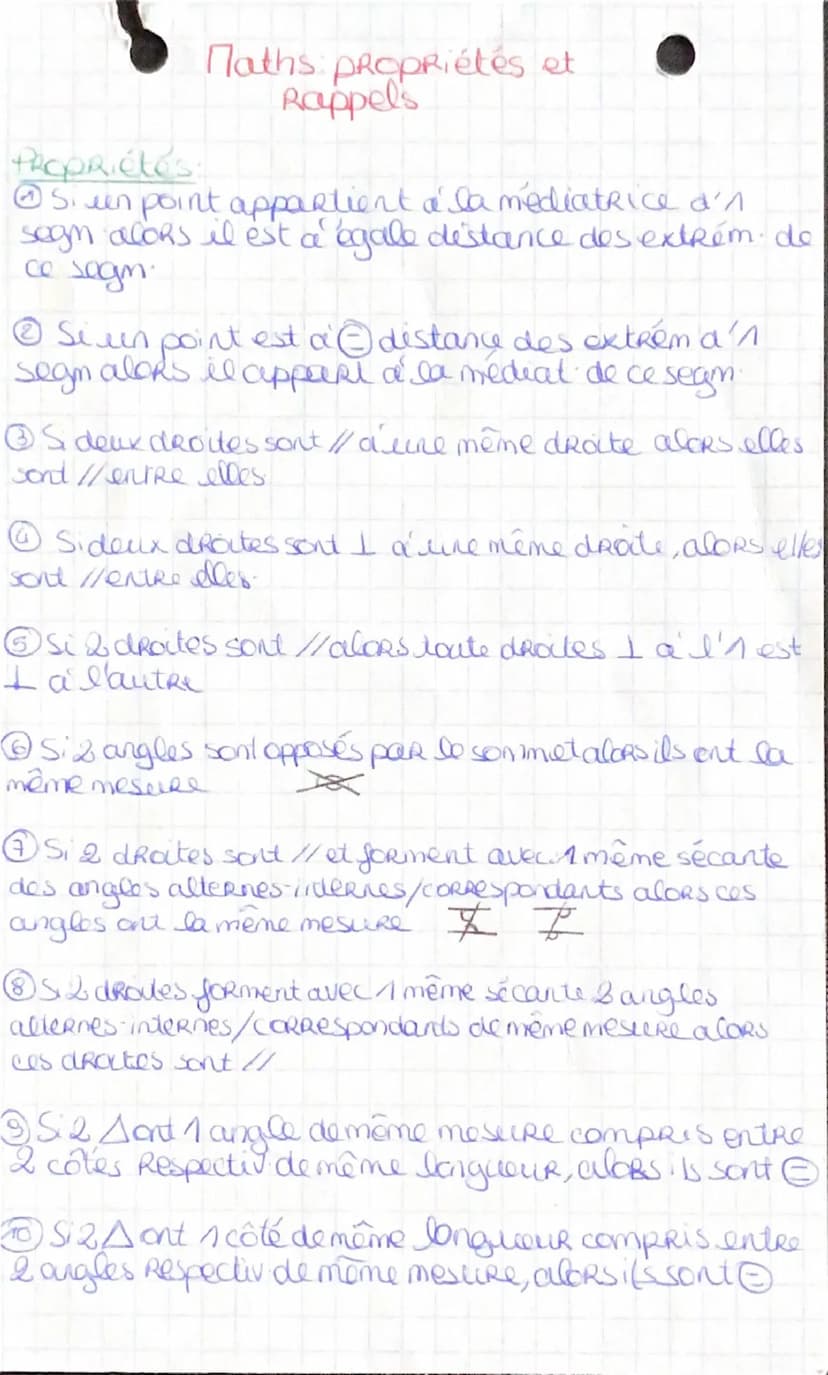 Maths: propriétés et
Rappels
Propriétés:
① Si un point appartient à la médiatrice d'1
segm alors il est à égale distance des extrém. de
ce segm.
② Si un point est à ⊜ distance des extrém d'1
segm alors il appart à la médiat. de ce segm.
③ Si deux droites sont // à une même droite alors elles
sont // entre elles
④ Si deux droites sont ⊥ à une même droite, alors elles
sont // entre elles.
⑤ Si 2 droites sont // alors toute droites ⊥ à l'1 est
⊥ à l'autre
⑥ Si 2 angles sont opposés par le sommet alors ils ont la
même mesure
⑦ Si 2 droites sont // et forment avec 1 même sécante
des angles alternes-internes/correspondants alors ces
angles ont la même mesure
⑧ Si 2 droites forment avec 1 même sécante 2 angles
alternes-internes/correspondants de même mesure alors
ces droites sont //
⑨ Si 2 Δ ont 1 angle de même mesure compris entre
2 côtés respectiv. de même longueur, alors ils sont ⊜
⑩ Si 2 Δ ont 1 côté de même longueur compris entre
2 angles respectiv. de même mesure, alors ils sont ⊜